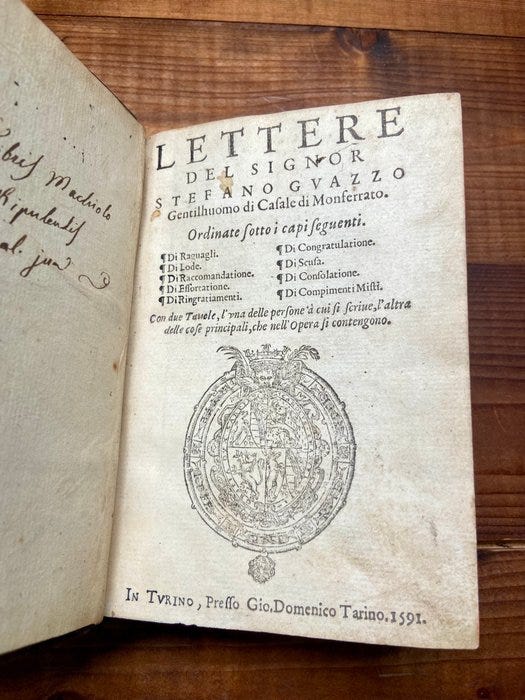 LETTERE
DEL SIGNOR
STEFANO GVAZZO
Gentilhuomo di Casale di Monferrato.
Ordinate sotto i capi seguenti.
¶ Di Raguagli.
¶ Di Lode.
¶ Di Raccomandatione.
¶ Di Essortatione.
¶ Di Ringratiamenti.
¶ Di Congratulatione.
¶ Di Scusa.
¶ Di Consolatione.
¶ Di Compimenti Misti.
Con due Tavole, l'vna delle persone à cui si scriue, l'altra
delle cose principali, che nell'Opera si contengono.
IN TVRINO, Presso Gio. Domenico Tarino. 1591.